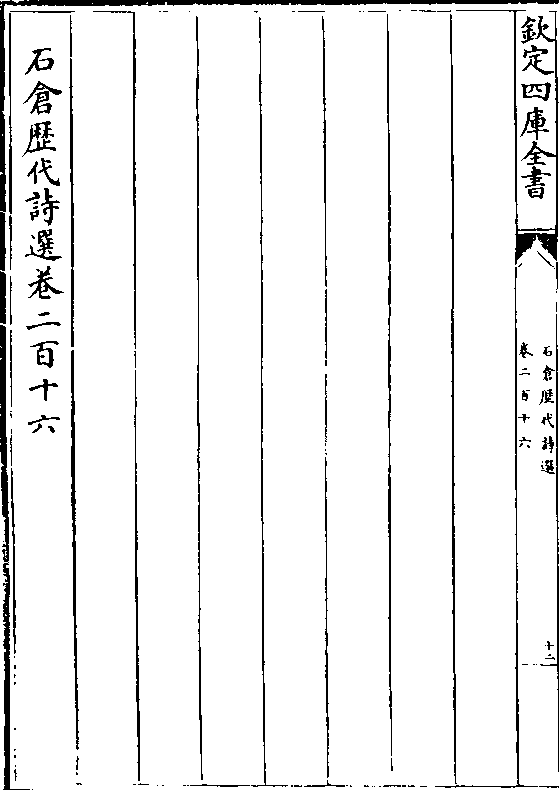 欽定四庫全書
石倉歴代詩選
卷二百十六
十二
石倉歴代詩選卷二百十六